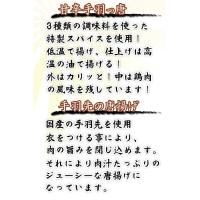 甘辛手羽っ唐
3種類の調味料を使った
特製スパイスを使用!
低温で揚げ、仕上げは高
温の油で揚げる!
外はカリッと!中は鶏肉
の風味を残しています!
手羽先の唐揚げ
国産の手羽先を使用
衣をつける事により、
肉の旨みを閉じ込めます。
それにより肉汁たっぷりの
ジューシーな唐揚げに
なっています。